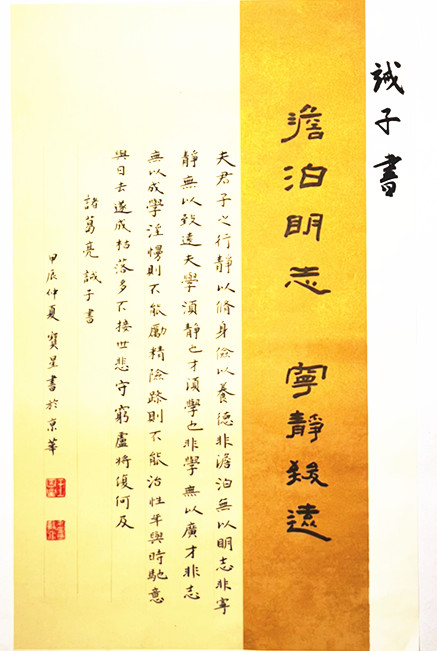 誡子書
澹泊明志 寧靜致遠
夫君子之行靜以脩身儉以養德非澹泊無以明志非寧
靜無以致遠夫學須靜也才須學也非學無以廣才非志
無以成學淫慢則不能勵精險躁則不能治性年與時馳意
與日去遂成枯落多不接世悲守窮廬將復何及
諸葛亮誡子書
甲辰仲夏寶星書於京華